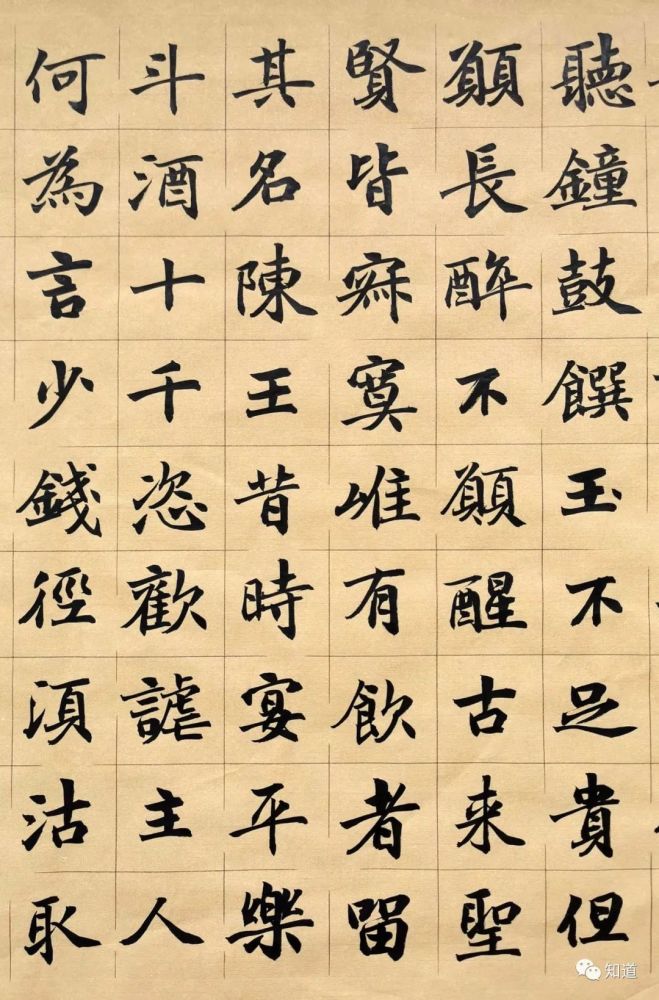 聽鐘鼓饌玉不足貴但
願長醉不願醒古来聖
賢皆寂寞唯有飲者留
其名陳王昔時宴平樂
斗酒十千恣歡謔主人
何為言少錢徑須沽取
知道